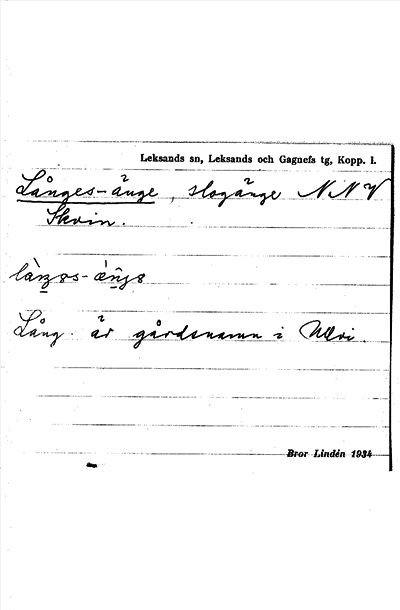 Leksands sn, Leksands och Gagnefs tg, Kopp. l.
Långes-änge, slogänge NNV
Skvin.
Lång- är gårdsnamn i Ulvi.
Bror Lindén 1934